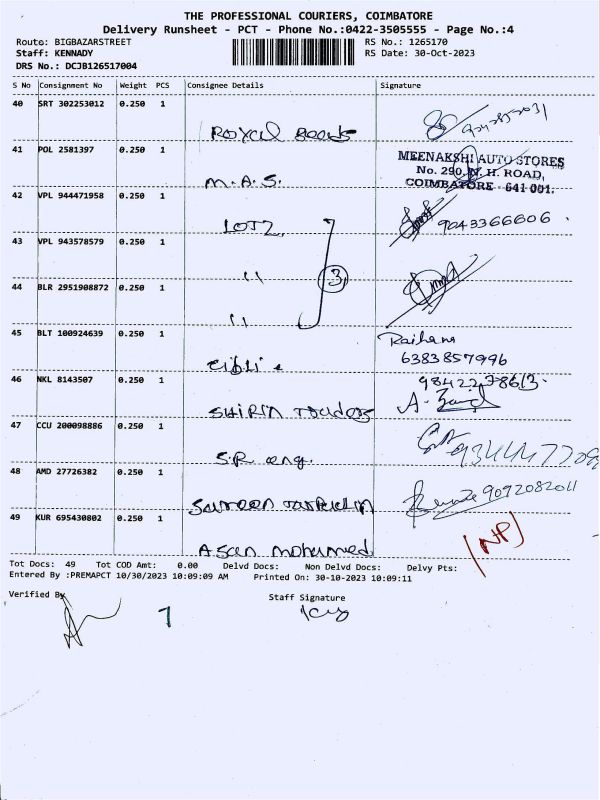 THE PROFESSIONAL COURIERS, COIMBATORE
Delivery Runsheet - PCT - Phone No.:0422-3505555 - Page No.:4
Route: BIGBAZARSTREET RS No.: 1265170
Staff: KENNADY RS Date: 30-Oct-2023
DRS No.: DCJB126517004
S No Consignment No Weight PCS Consignee Details Signature
40 SRT 302253012 0.250 1
41 POL 2581397 0.250 1
M.A.S.
MEENAKSHI AUTO STORES
No. 290, N. H. ROAD,
COIMBATORE - 641 001.
42 VPL 944471958 0.250 1
9043366606
43 VPL 943578579 0.250 1
" 3
44 BLR 2951908872 0.250 1
"
45 BLT 100924639 0.250 1
6383857996
46 NKL 8143507 0.250 1
SHIRIN Traders
47 CCU 200098886 0.250 1
S.R. eng.
48 AMD 27726382 0.250 1
9092082011
49 KUR 695430802 0.250 1
Asan mohamed (NP)
Tot Docs: 49 Tot COD Amt: 0.00 Delvd Docs: Non Delvd Docs: Delvy Pts:
Entered By :PREMAPCT 10/30/2023 10:09:09 AM Printed On: 30-10-2023 10:09:11
Verified By Staff Signature